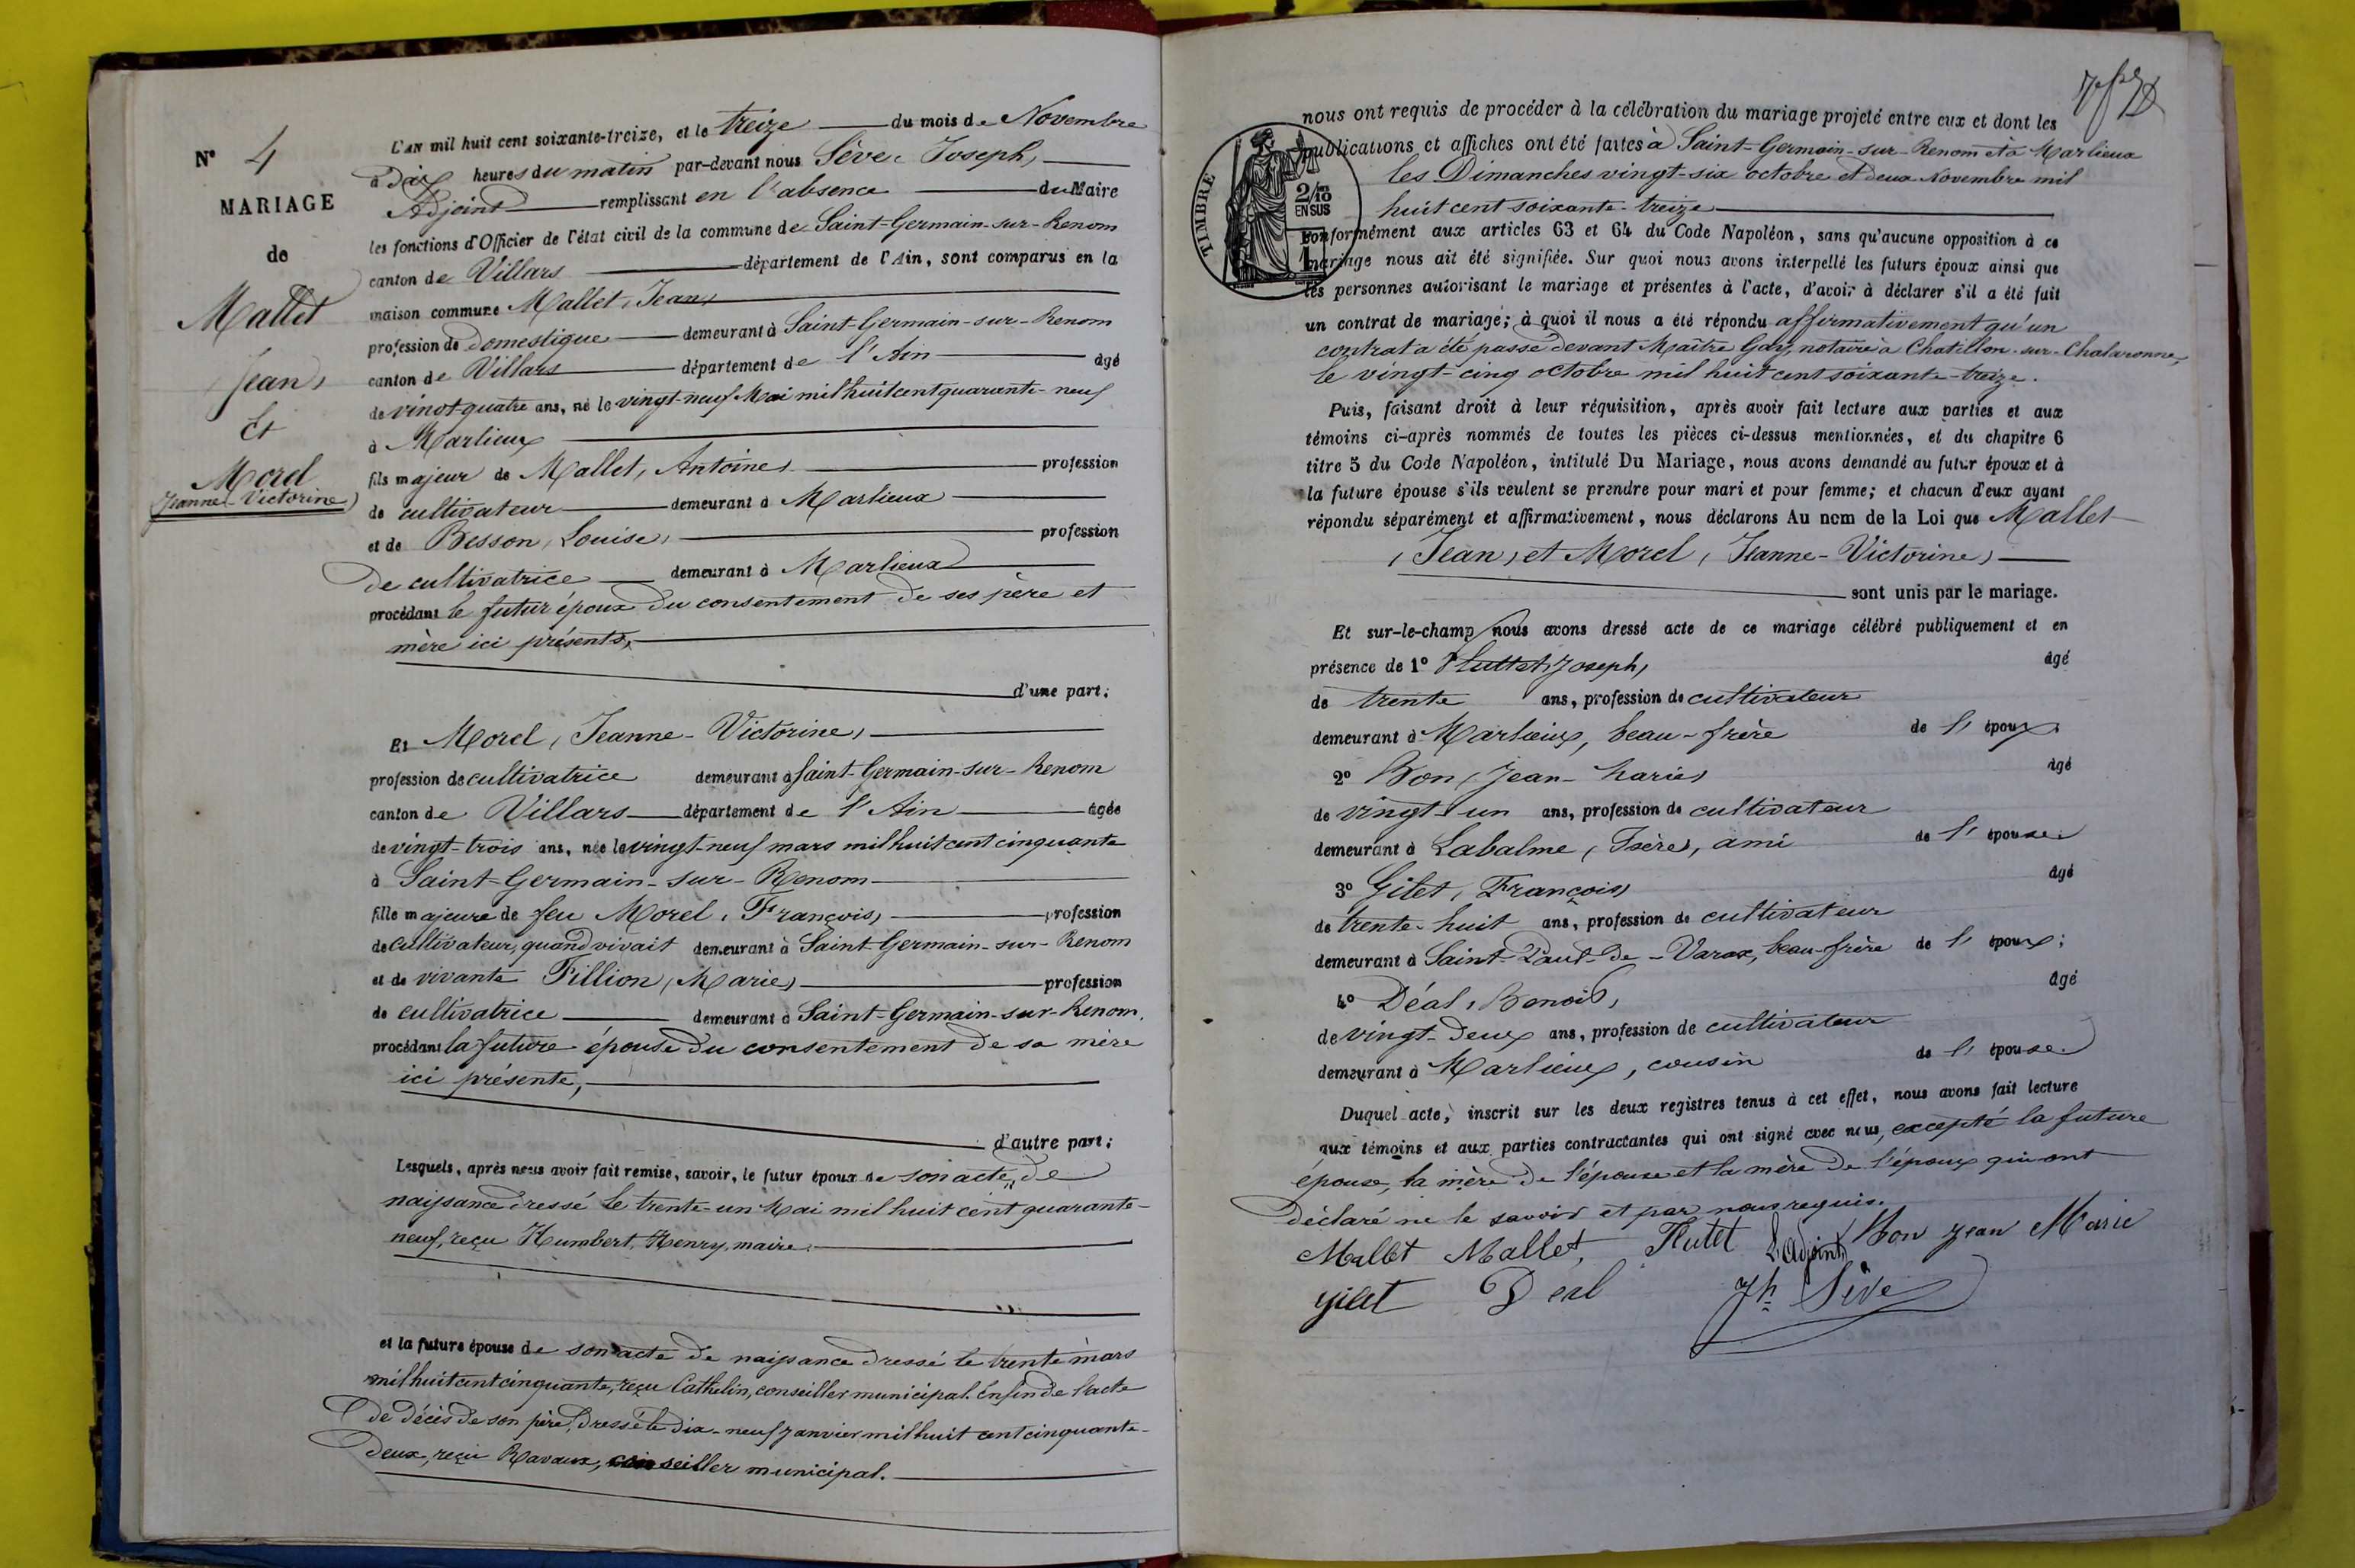 N° 4
MARIAGE
de
Mallet
(Jean)
Et
Morel
(Jeanne-Victorine)
L'AN mil huit cent soixante-treize, et le treize du mois de Novembre
à Dix heures du matin par-devant nous Sève (Joseph)
Adjoint remplissant en l'absence du Maire
les fonctions d'Officier de l'état civil de la commune de Saint-Germain-sur-Renom
canton de Villars département de l'Ain, sont comparus en la
maison commune Mallet (Jean)
profession de Domestique demeurant à Saint-Germain-sur-Renom
canton de Villars département de l'Ain âgé
de vingt-quatre ans, né le vingt-neuf Mai mil huit cent quarante-neuf
à Marlieux
fils majeur de Mallet (Antoine) profession
de cultivateur demeurant à Marlieux
et de Besson (Louise) profession
De cultivatrice demeurant à Marlieux
procédant le futur époux du consentement de ses père et
mère ici présents,
d'une part;
Et Morel (Jeanne-Victorine)
profession de cultivatrice demeurant à Saint-Germain-sur-Renom
canton de Villars département de l'Ain âgée
de vingt-trois ans, née le vingt-neuf mars mil huit cent cinquante
à Saint-Germain-sur-Renom
fille majeure de feu Morel (François) profession
de cultivateur, quand vivait demeurant à Saint-Germain-sur-Renom
et de vivante Fillion (Marie) profession
de cultivatrice demeurant à Saint-Germain-sur-Renom.
procédant la future épouse du consentement de sa mère
ici présente,
d'autre part;
Lesquels, après nous avoir fait remise, savoir, le futur époux de son acte de
naissance dressé le trente-un Mai mil huit cent quarante-
neuf, reçu Humbert, Henry, maire.
et la future épouse de son acte de naissance dressé le trente mars
mil huit cent cinquante, reçu Cathelin, conseiller municipal. Enfin de l'acte
de décès de son père, dressé le dix-neuf Janvier mil huit cent cinquante-
deux, reçu Ravaux, conseiller municipal.
nous ont requis de procéder à la célébration du mariage projeté entre eux et dont les
publications et affiches ont été faites à Saint-Germain-sur-Renom et à Marlieux
les Dimanches vingt-six octobre et deux Novembre mil
huit cent soixante-treize
TIMBRE
2/10
EN SUS
conformément aux articles 63 et 64 du Code Napoléon, sans qu'aucune opposition à ce
mariage nous ait été signifiée. Sur quoi nous avons interpellé les futurs époux ainsi que
les personnes autorisant le mariage et présentes à l'acte, d'avoir à déclarer s'il a été fait
un contrat de mariage; à quoi il nous a été répondu affirmativement qu'un
contrat a été passé devant Maître Gay, notaire à Chatillon-sur-Chalaronne,
le vingt-cinq octobre mil huit cent soixante-treize.
Puis, faisant droit à leur réquisition, après avoir fait lecture aux parties et aux
témoins ci-après nommés de toutes les pièces ci-dessus mentionnées, et du chapitre 6
titre 5 du Code Napoléon, intitulé Du Mariage, nous avons demandé au futur époux et à
la future épouse s'ils veulent se prendre pour mari et pour femme; et chacun d'eux ayant
répondu séparément et affirmativement, nous déclarons Au nom de la Loi que Mallet
(Jean) et Morel (Jeanne-Victorine)
sont unis par le mariage.
Et sur-le-champ nous avons dressé acte de ce mariage célébré publiquement et en
présence de 1° Joseph) âgé
de trente ans, profession de cultivateur
demeurant à Marlieux, beau-frère de l' époux.
2° Bon (Jean-Marie) âgé
de vingt-un ans, profession de cultivateur
demeurant à Labalme (Isère), ami de l' épouse.
3° Gilet (François) âgé
de trente-huit ans, profession de cultivateur
demeurant à Saint-Paul-de-Varax, beau-frère de l' époux;
4° Déal (Benoit) âgé
de vingt-deux ans, profession de cultivateur
demeurant à Marlieux, cousin de l' épouse.
Duquel acte, inscrit sur les deux registres tenus à cet effet, nous avons fait lecture
aux témoins et aux parties contractantes qui ont signé avec nous, excepté la future
épouse, la mère de l'épouse et la mère de l'époux qui ont
déclaré ne le savoir et par nous requis.
Mallet Mallet, Bon Jean Marie
L'adjoint
gilet Deal Jh Sève